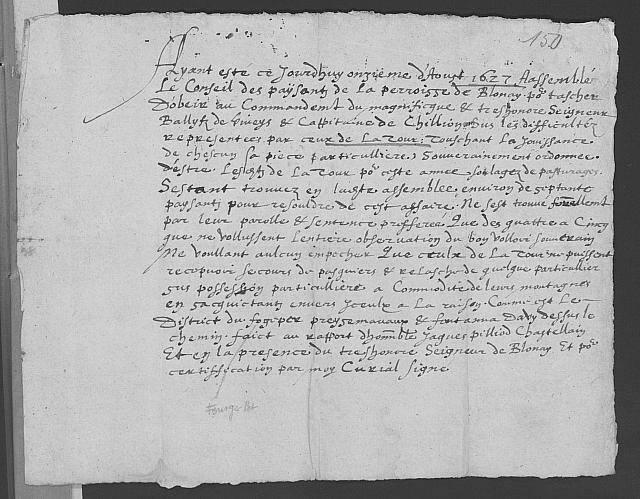 150
Ayant este ce Jourdhuy onzieme d'Aoust 1627 Aassemblé
Le Conseil des paysant de La perroisse de Blonay po.r tascher
Dobeir au Commandemt du magnificque & treshonoré Seigneur
Ballyf de Viveys & Cappitaine de Chillion, Sus les difficultéz
representées par ceux de La Tour, Touschant La Jouissance
de chescun sa piece particulliere, Souverainement ordonnée
d'estre Les de La Tour po.r ceste année soulagez de pasturages
Sestant trouvez en ladite assemblée environ de septante
paysants pour resouldre de cest affaire, Ne sest trouvé
par leur parolle & sentence profferée Que des quattre a Cincq
que ne vollussent Lentiere observation du bon volloir souverain
Ne voullant aulcun empecher Que ceulx de La Tour ne puissent
recepvoir secours de pasquiers & relasche de quelque particullier
sus possession particulliere a Commodité de leurs montagnes
en sacquictant envers Iceulx a La raison. Comme est Le
District du fogeper preysemavaux & fontanna Davy dessus le
chemin. faict au rapport d'homble Jaques pilliod Chastellain
Et en la presence du treshonoré Seigneur de Blonay Et po.r
certiffication par moy Curial signé